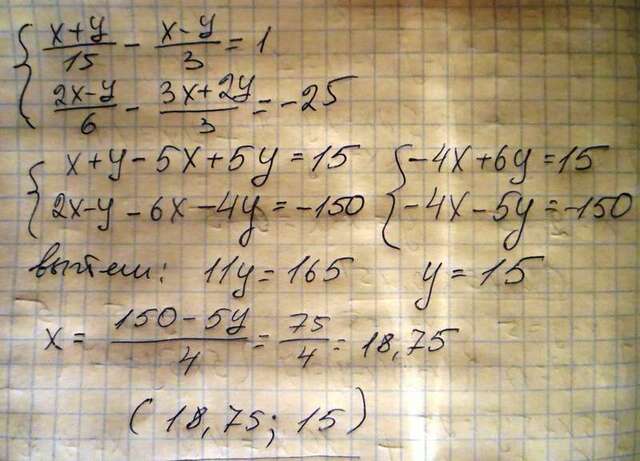 { (x+y)/15 - (x-y)/3 = 1
(2x-y)/6 - (3x+2y)/3 = -25
{ x+y-5x+5y=15 { -4x+6y=15
2x-y-6x-4y=-150 -4x-5y=-150
вычтем: 11y=165 y=15
x= (150-5y)/4 = 75/4 = 18,75
(18,75; 15)